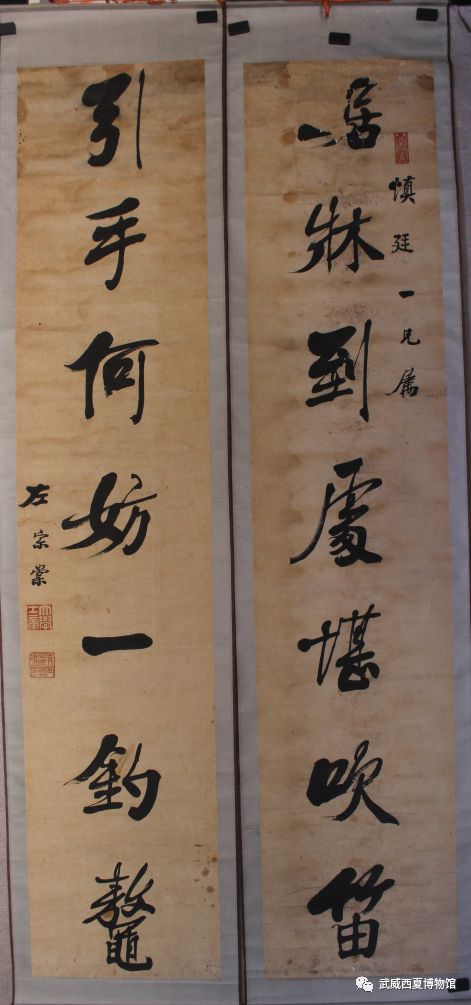 慎廷一兄属
踞牀到處堪吹笛
引手何妨一釣鼇
左宗棠
武威西夏博物馆